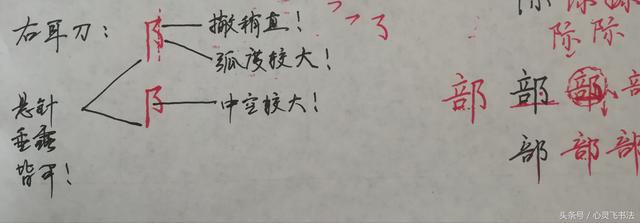 右耳刀：
撇稍直！
弧度较大！
中空较大！
悬针
垂露
皆可！
际 际
际 际
部 部 部 部
部 部 部
头条号 / 心灵飞书法